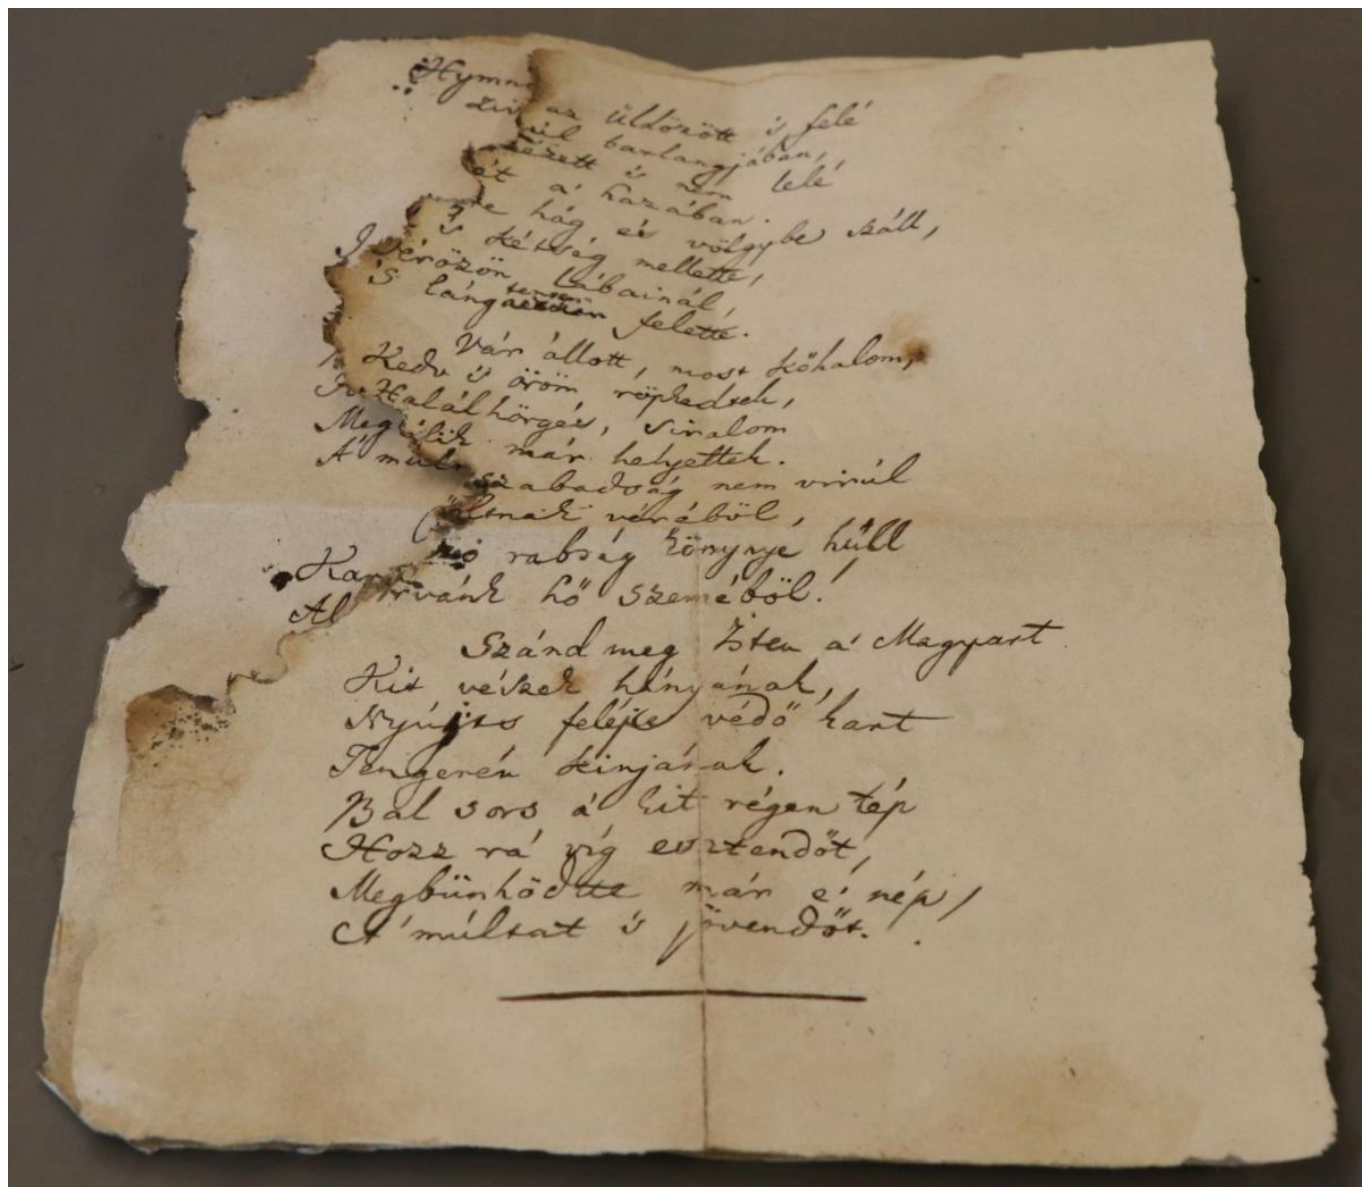 Hymn
az üldözött is felé
barlangjában,
nem lelé
a' hazában.
hág és völgybe száll,
is kétség mellette,
Vérözön lábainál,
'S láng tenger felette.
Vár állott, most kőhalom,
Kedv is öröm röpkedtek,
Halálhörgés, siralom
már helyettek.
szabadság nem virúl
véréből,
rabság könynye hűll
hő szeméből!
Szánd meg Isten a' Magyart
Kit vészek hányának,
Nyújts feléje védő kart
Tengerén kinjának.
Bal sors a' kit régen tép
Hozz rá víg esztendőt,
Megbünhödte már e' nép
A' múltat is jövendőt.